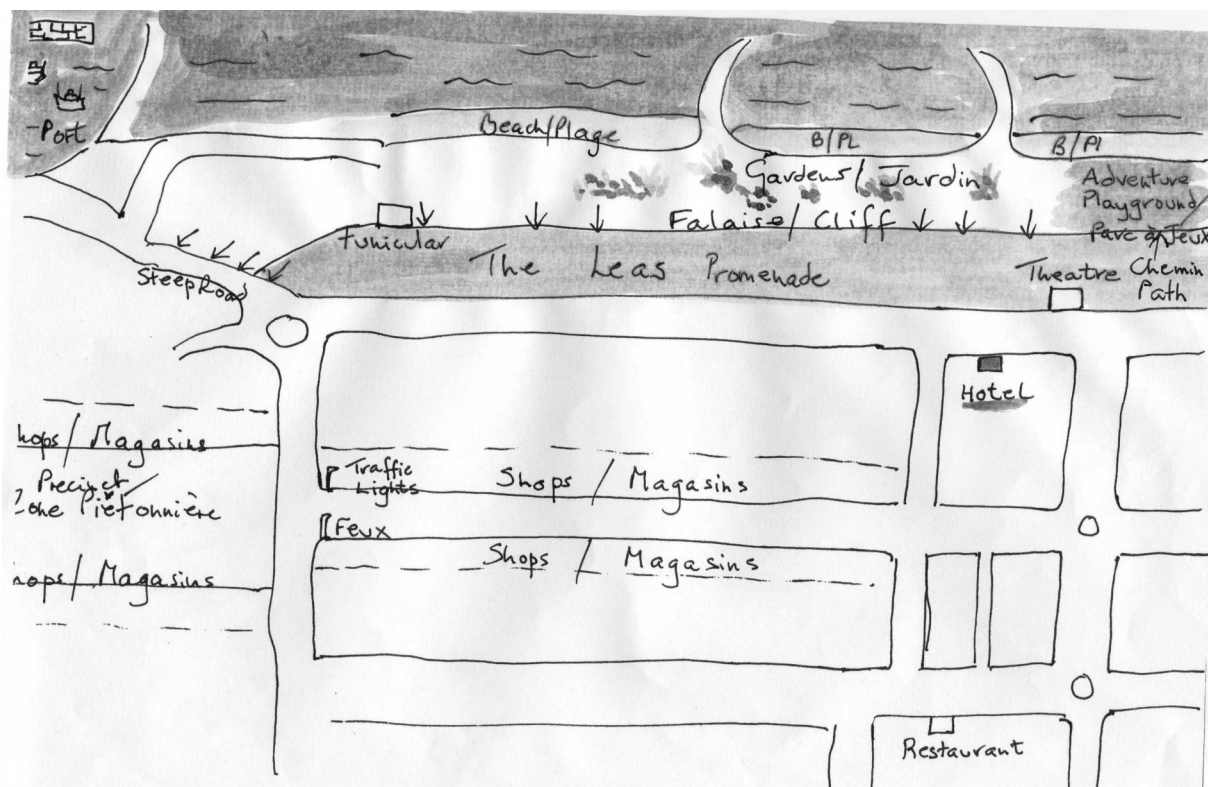 Port
Beach/Plage
B/PL
B/Pl
Gardens/Jardin
Adventure
Playground/
Parc à Jeux
Falaise/Cliff
Funicular
The Leas Promenade
Theatre
Chemin
Path
Steep Road
Hotel
hops/Magasins
Precinct/
Zone Piétonnière
hops/Magasins
Traffic
Lights
Shops/Magasins
Feux
Shops/Magasins
Restaurant